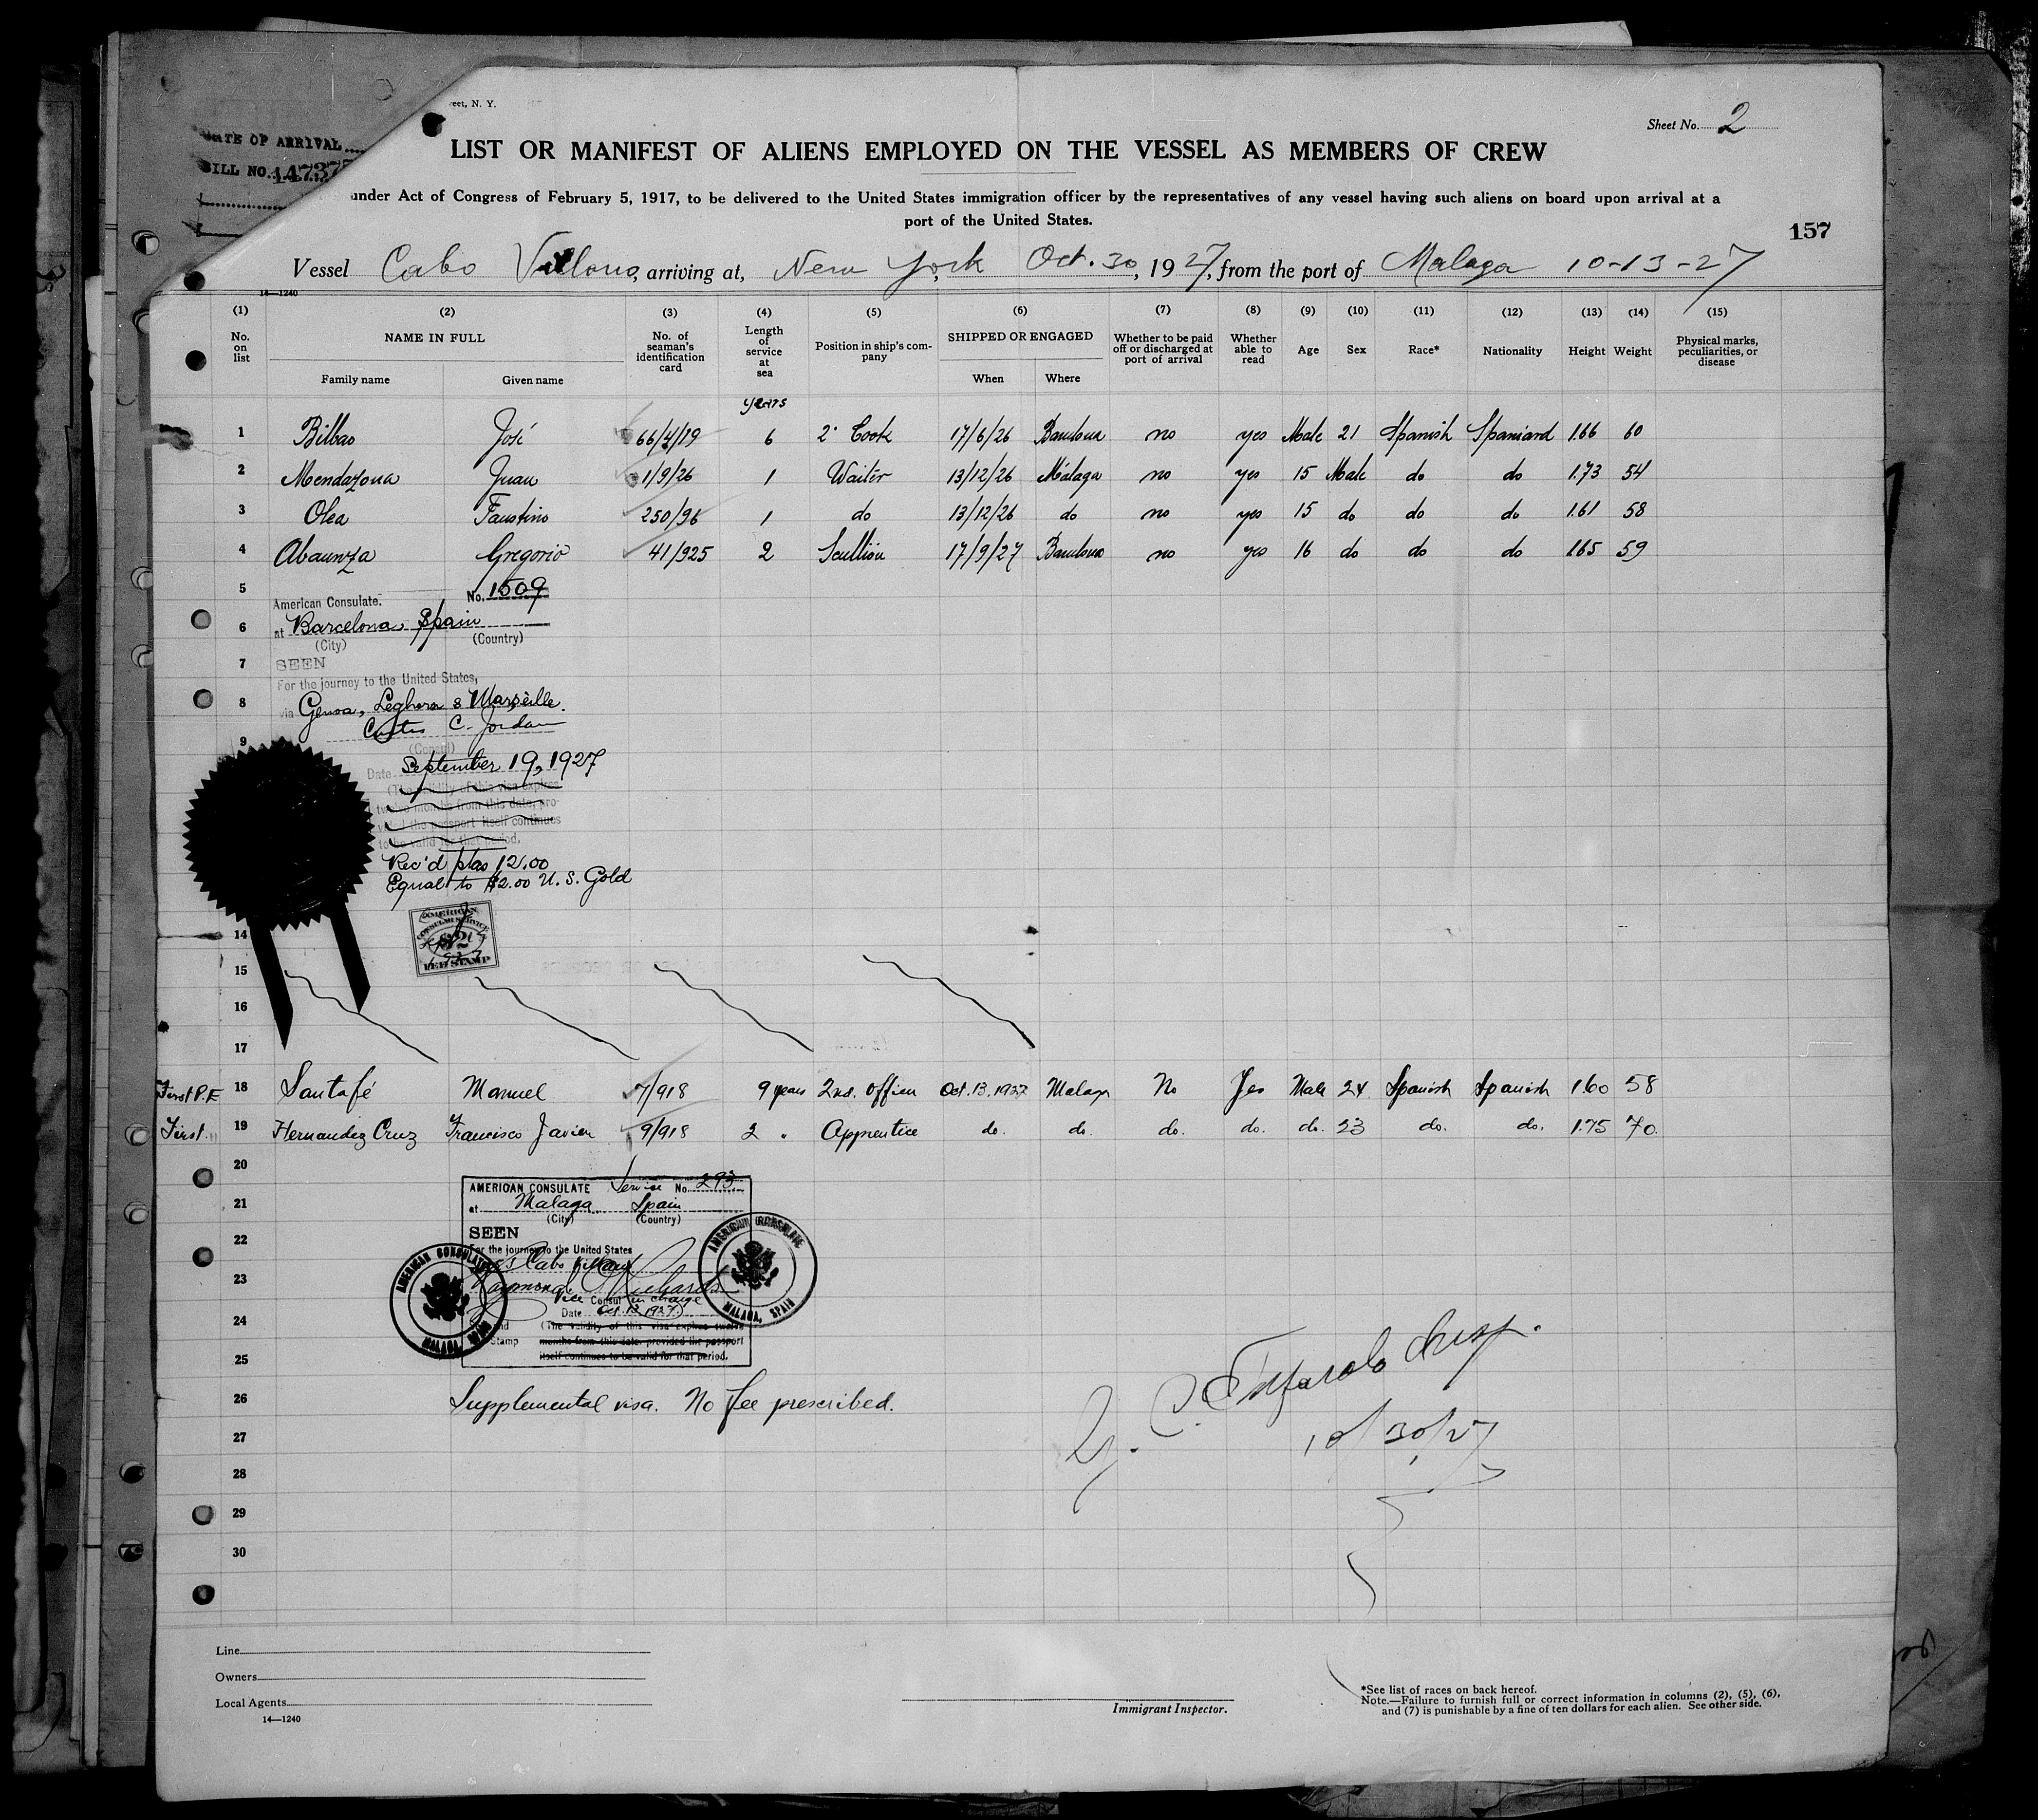 reet, N. Y.
Sheet No. 2
DATE OF ARRIVAL
BILL NO. 14737
LIST OR MANIFEST OF ALIENS EMPLOYED ON THE VESSEL AS MEMBERS OF CREW
under Act of Congress of February 5, 1917, to be delivered to the United States immigration officer by the representatives of any vessel having such aliens on board upon arrival at a
port of the United States.
157
Vessel Cabo Villano, arriving at, New York Oct. 30, 1927, from the port of Malaga 10-13-27
14—1240
(1) (2) (3) (4) (5) (6) (7) (8) (9) (10) (11) (12) (13) (14) (15)
No. on list NAME IN FULL No. of seaman's identification card Length of service at sea Position in ship's company SHIPPED OR ENGAGED Whether to be paid off or discharged at port of arrival Whether able to read Age Sex Race* Nationality Height Weight Physical marks, peculiarities, or disease
Family name Given name When Where
years
1 Bilbao José 66/4/19 6 2º Cook 17/6/26 Barcelona no yes Male 21 Spanish Spaniard 1.66 60
2 Mendazona Juan 1/9/26 1 Waiter 13/12/26 Malaga no yes 15 Male do do 1.73 54
3 Olea Faustino 250/96 1 do 13/12/26 do no yes 15 do do do 1.61 58
4 Abaunza Gregorio 41/925 2 Scullion 17/9/27 Barcelona no yes 16 do do do 1.65 59
5 American Consulate. No. 1509
6 at Barcelona, Spain
(City) (Country)
7 SEEN
For the journey to the United States,
8 via Genoa, Leghorn & Marseille.
Curtis C. Jordan
9 (Consul)
Date September 19, 1927
(The validity of this visa expires
twelve months from this date, pro-
vided the passport itself continues
to be valid for that period.
Rec'd ptas 12.00
Equal to $2.00 U. S. Gold
AMERICAN
CONSULAR SERVICE
$2
FEE STAMP
14
15
16
17
First P.E 18 Santafé Manuel 7/918 9 years 2nd. Officer Oct. 13, 1927 Malaga No Yes Male 24 Spanish Spanish 1.60 58
First 19 Hernandez Cruz Francisco Javier 9/918 2 " Apprentice do. do. do. do. do. 23 do. do. 1.75 70.
20
AMERICAN CONSULATE Service No. 293
21 at Malaga Spain
(City) (Country)
22 SEEN
For the journey to the United States
Cabo Villano
23
Vice Consul in charge
Date Oct. 13, 1927
24 (The validity of this visa expires twelve
Stamp months from this date provided the passport
25 itself continues to be valid for that period.
AMERICAN CONSULATE
MALAGA, SPAIN
AMERICAN CONSULATE
MALAGA, SPAIN
26 Supplemental visa. No fee prescribed.
10/30/27
27
28
29
30
Line
Owners
Local Agents
14—1240
Immigrant Inspector.
*See list of races on back hereof.
Note.—Failure to furnish full or correct information in columns (2), (5), (6),
and (7) is punishable by a fine of ten dollars for each alien. See other side.